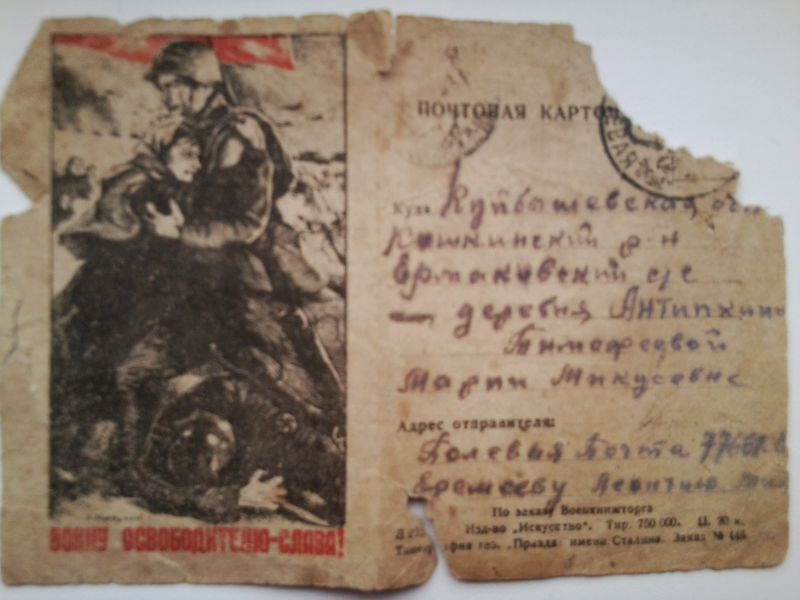 ВОИНУ ОСВОБОДИТЕЛЮ-СЛАВА!
ПОЧТОВАЯ КАРТОЧ
Куда Куйбышевская обл
Кошкинский р-н
Ермаковский с/с
деревня Антипкино
Тимофеевой
Марии Микусевне
Адрес отправителя:
Полевая Почта
Еремееву Леонтию
По заказу Военкнижторга
Изд-во „Искусство". Тир. 750 000. Ц. 20 к.
Типография газ. „Правда" имени Сталина. Заказ № 448